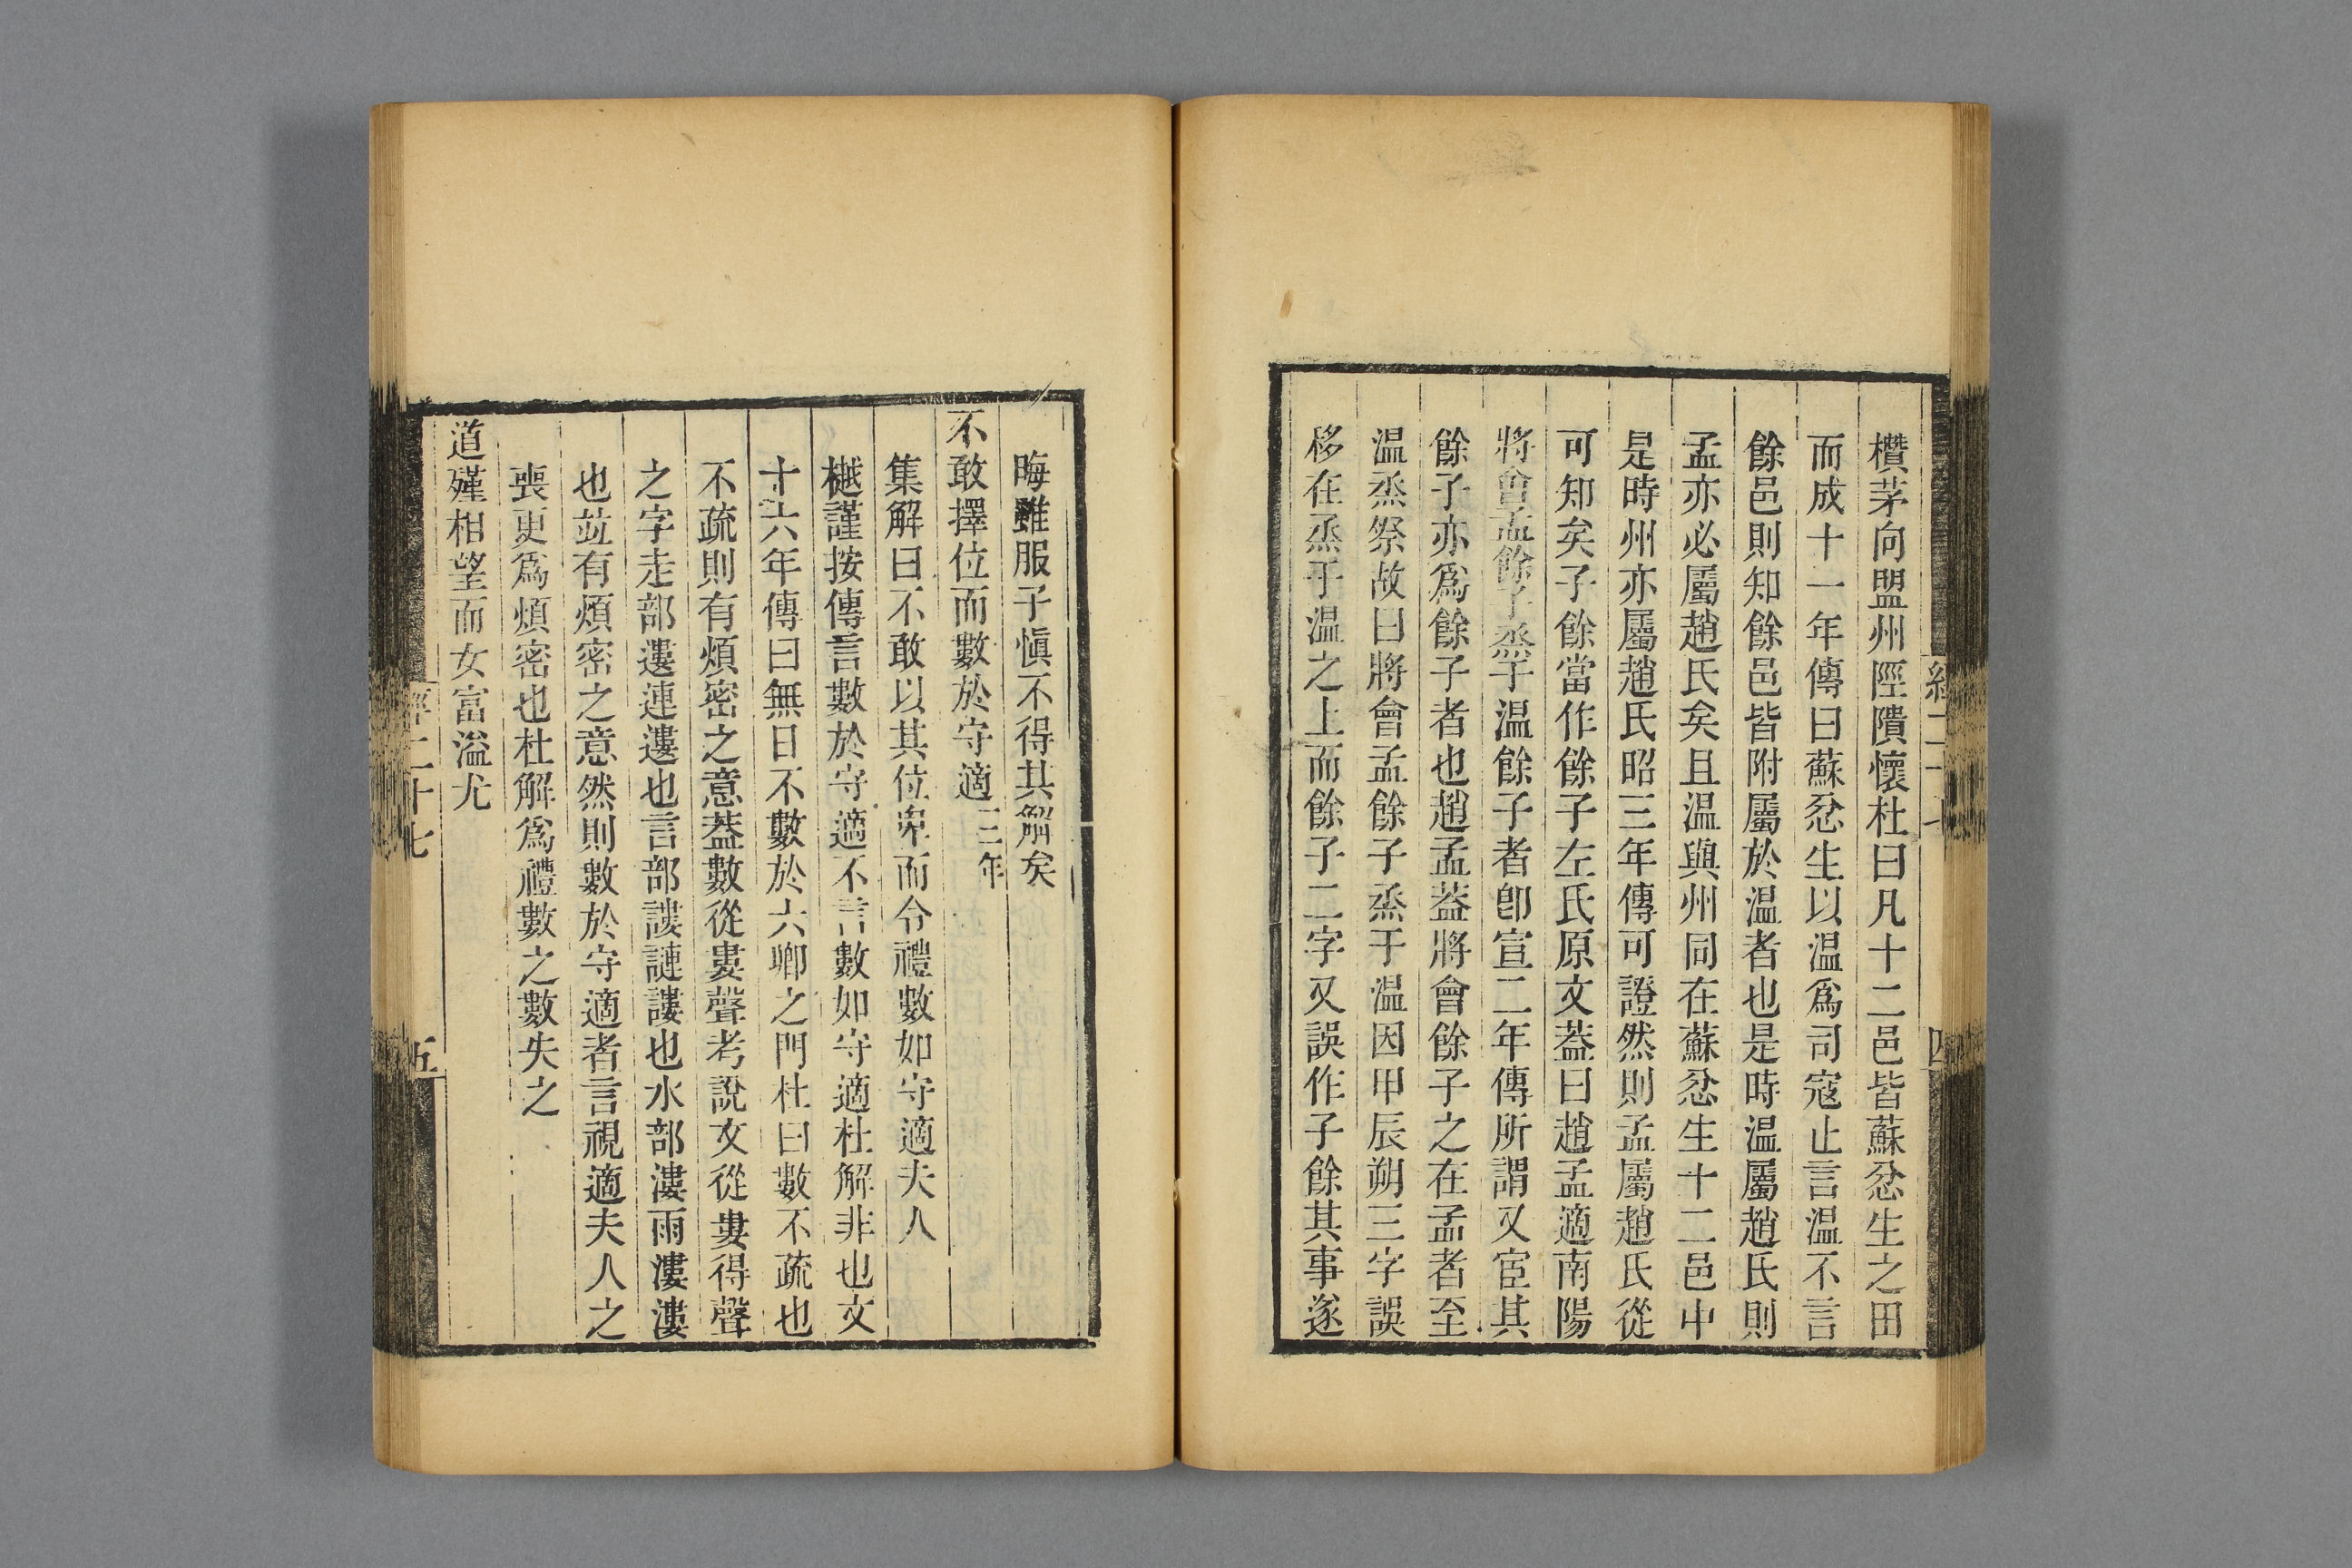 欑茅向盟州陘隤懷杜曰凡十二邑皆蘇忿生之田
而成十一年傳曰蘇忿生以温爲司寇止言温不言
餘邑則知餘邑皆附屬於温者也是時温屬趙氏則
孟亦必屬趙氏矣且温與州同在蘇忿生十二邑中
是時州亦屬趙氏昭三年傳可證然則孟屬趙氏從
可知矣子餘當作餘子左氏原文葢曰趙孟適南陽
將會孟餘子烝于温餘子者卽宣二年傳所謂又宦其
餘子亦爲餘子者也趙孟葢將會餘子之在孟者至
温烝祭故曰將會孟餘子烝于温因甲辰朔三字誤
移在烝于温之上而餘子二字又誤作子餘其事遂
晦雖服子愼不得其解矣
不敢擇位而數於守適三年
集解曰不敢以其位卑而令禮數如守適夫人
樾謹按傳言數於守適不言數如守適杜解非也文
十六年傳曰無日不數於六卿之門杜曰數不疏也
不疏則有煩密之意葢數從婁聲考說文從婁得聲
之字走部遱連遱也言部謱謰謱也水部漊雨漊漊
也竝有煩密之意然則數於守適者言視適夫人之
喪更爲煩密也杜解爲禮數之數失之
道殣相望而女富溢尤
經二十七
五